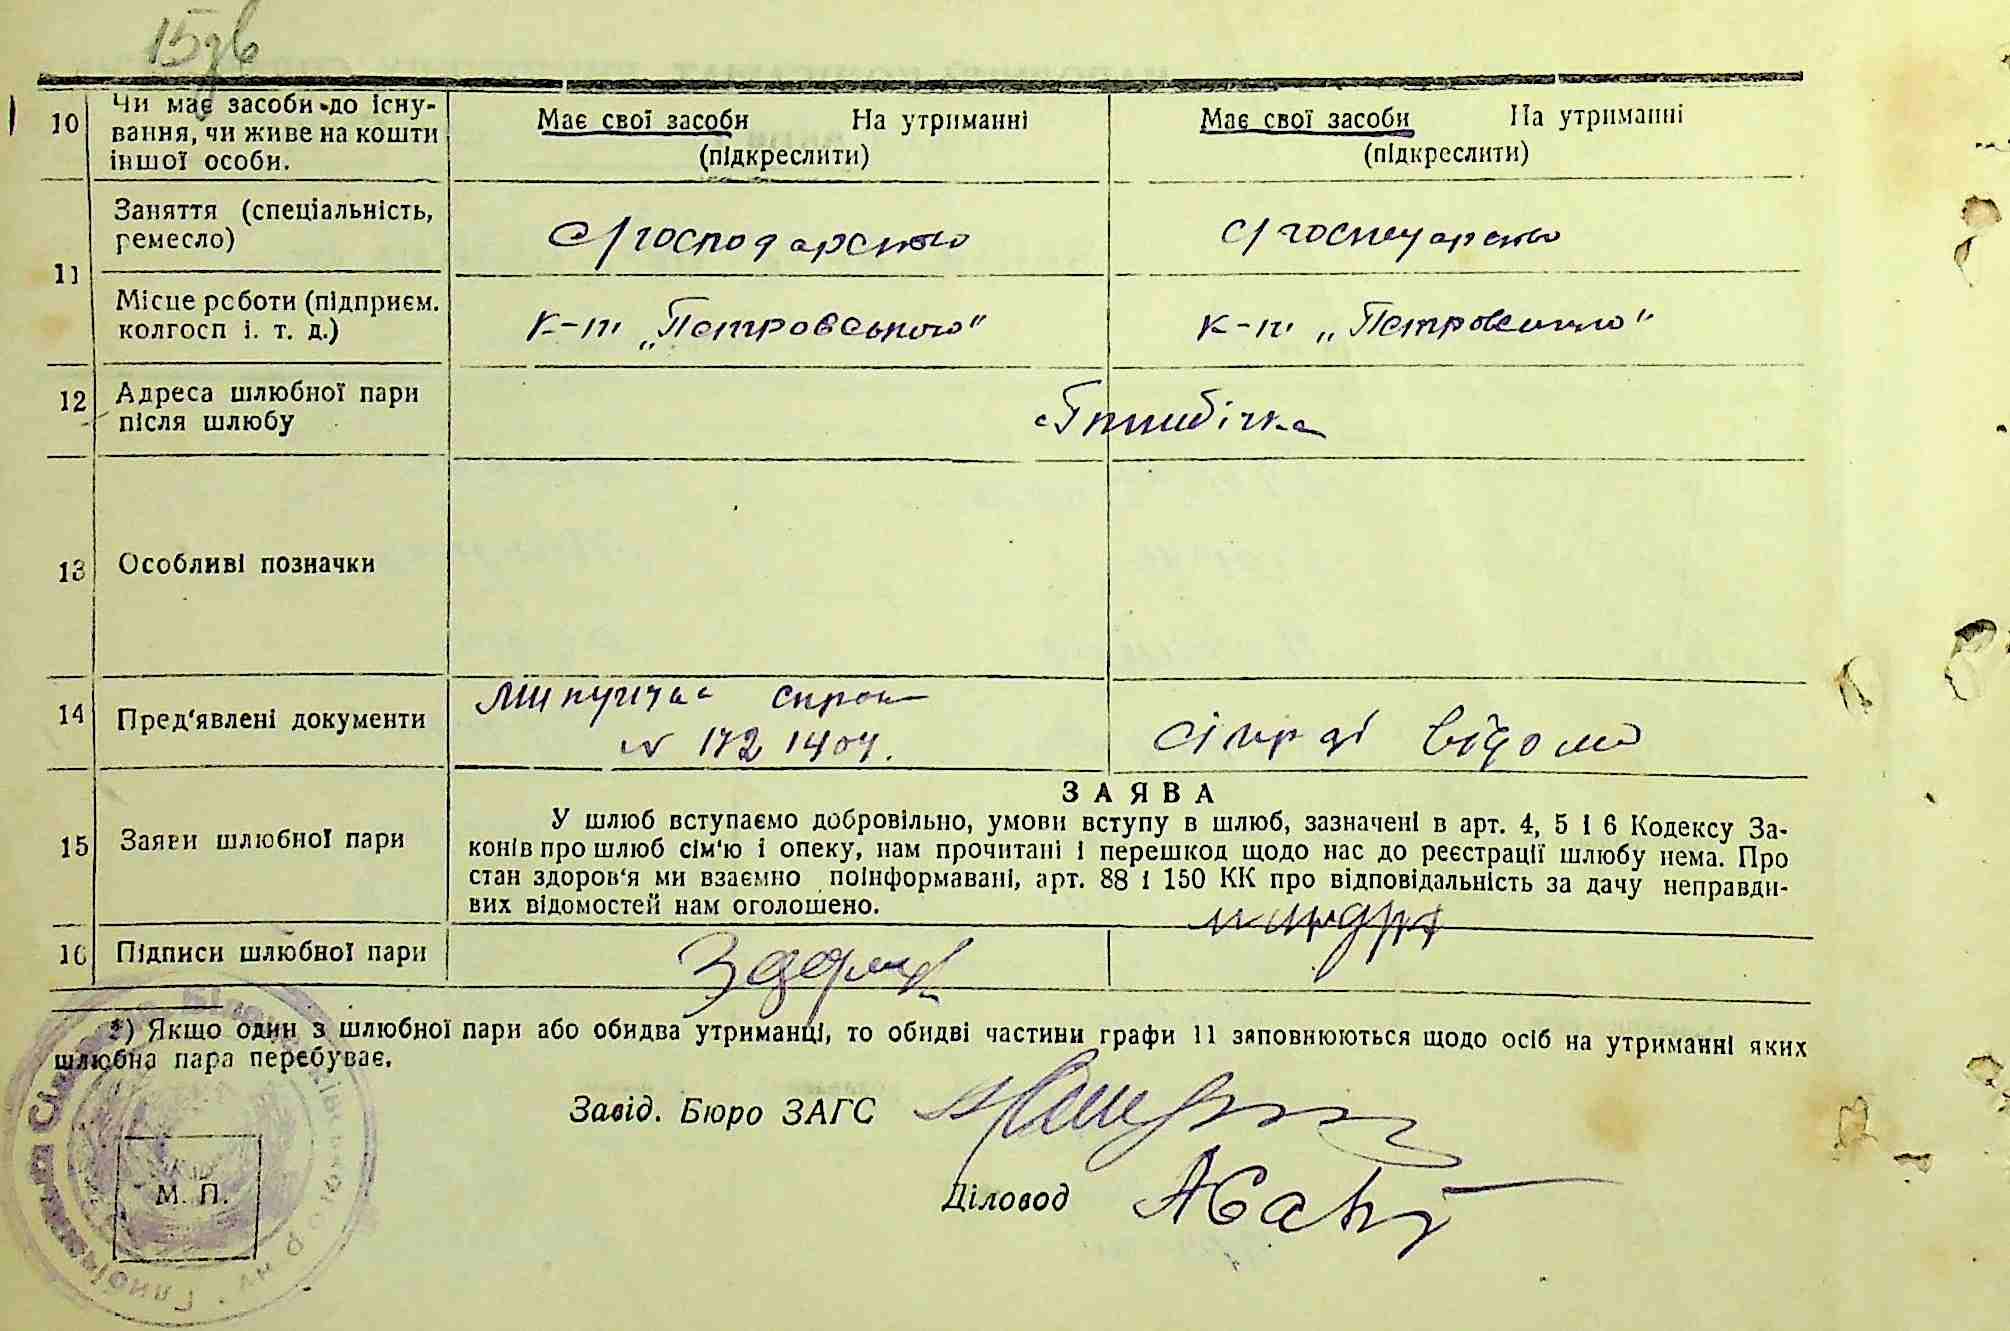 10 Чи має засоби до існу-
вання, чи живе на кошти
іншої особи.
Має свої засоби На утриманні
(підкреслити)
Має свої засоби На утриманні
(підкреслити)
11 Заняття (спеціальність,
ремесло)
с/господарство
с/господарство
Місце роботи (підприєм.
колгосп і. т. д.)
к-п „Петровського"
к-п „Петровського"
12 Адреса шлюбної пари
після шлюбу
13 Особливі позначки
14 Пред'явлені документи
сільраді відома
15 Заяви шлюбної пари
ЗАЯВА
У шлюб вступаємо добровільно, умови вступу в шлюб, зазначені в арт. 4, 5 і 6 Кодексу За-
конів про шлюб сім'ю і опеку, нам прочитані і перешкод щодо нас до реєстрації шлюбу нема. Про
стан здоров'я ми взаємно поінформавані, арт. 88 і 150 КК про відповідальність за дачу неправди-
вих відомостей нам оголошено.
16 Підписи шлюбної пари
*) Якщо один з шлюбної пари або обидва утриманці, то обидві частини графи 11 заповнюються щодо осіб на утриманні яких
шлюбна пара перебуває.
Завід. Бюро ЗАГС
Діловод
М. П.